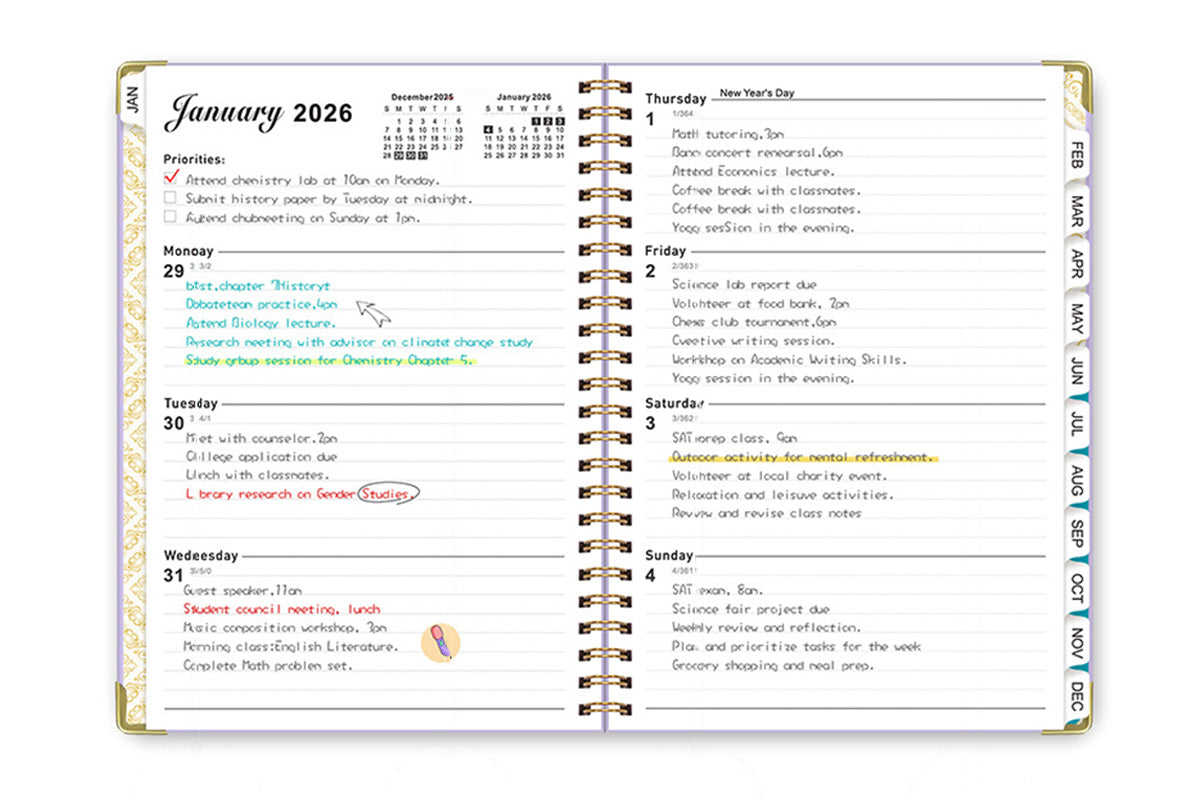 JAN
January 2026
December 2025
S M T W T F S
1 2 3 4 5 6
7 8 9 10 11 12 13
14 15 16 17 18 19 20
21 22 23 24 25 26 27
28 29 30 31
January 2026
S M T W T F S
1 2 3
4 5 6 7 8 9 10
11 12 13 14 15 16 17
18 19 20 21 22 23 24
25 26 27 28 29 30 31
Priorities:
Attend chemistry lab at 10am on Monday.
Submit history paper by Tuesday at midnight.
on Sunday at 1pm.
Monoay
29
chapter
practice,4pm
Biology lecture.
Research meeting with advisor on climate change study
Study group session for Chemistry Chapter 5.
Tuesday
30
Meet with counselor.2pm
College application due
Lunch with classmates.
Library research on Gender Studies.
Wedeesday
31
Guest speaker,11am
Student council meeting, lunch
Music composition workshop, 3pm
Morning class:English Literature.
Complete Math problem set.
Thursday
New Year's Day
1
1/364
Math tutoring,3pm
concert rehearsal,6pm
Attend Economics lecture.
Coffee break with classmates.
Coffee break with classmates.
Yoga sesSion in the evening.
Friday
2
2/363
Science lab report due
Volunteer at food bank, 2pm
Chess club tournament,6pm
Creative writing session.
Workshop on Academic Writing Skills.
Yoga session in the evening.
Saturday
3
3/362
SAT prep class, 9am
Outdoor activity for mental refreshment.
Volunteer at local charity event.
Relaxation and leisure activities.
Review and revise class notes
Sunday
4
4/361
SAT exam, 8am.
Science fair project due
Weekly review and reflection.
Plan and prioritize tasks for the week
Grocery shopping and meal prep.
FEB
MAR
APR
MAY
JUN
JUL
AUG
SEP
OCT
NOV
DEC